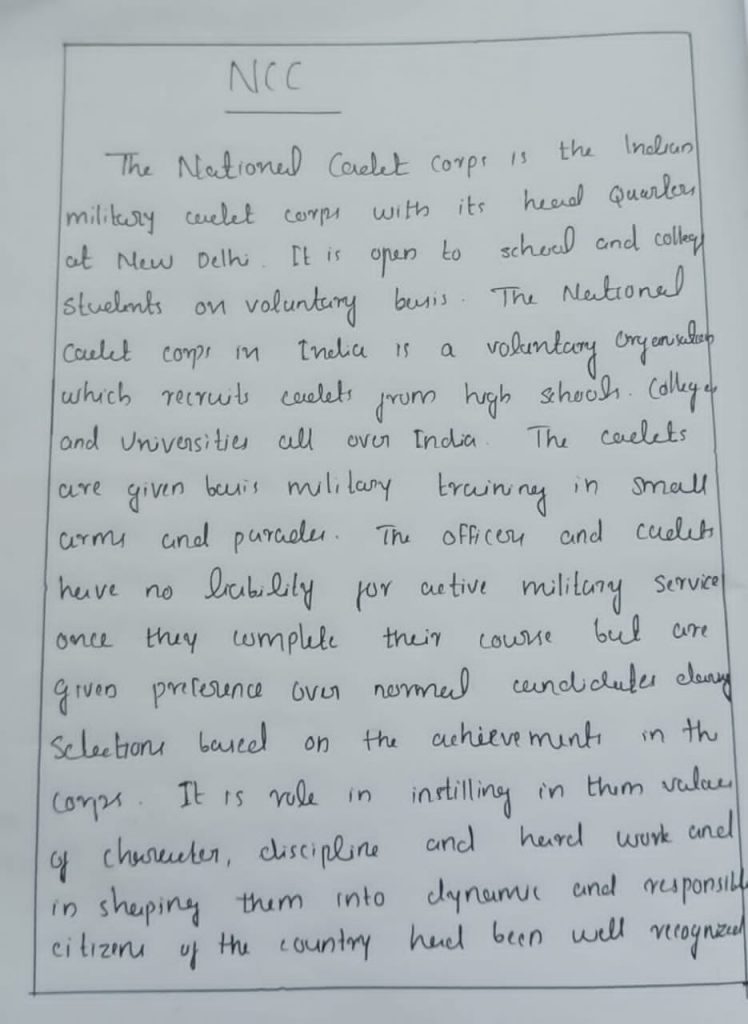 NCC
The National Cadet corps is the Indian
military cadet corps with its head Quarters
at New Delhi. It is open to school and college
students on voluntary basis. The National
Cadet corps in India is a voluntary Organisation
which recruits cadets from high schools. Colleges
and Universities all over India. The cadets
are given basis military training in small
arms and parades. The officers and cadets
have no liability for active military service
once they complete their course but are
given preference over normal candidates during
Selections based on the achievements in th
corps. It is role in instilling in them values
of character, discipline and hard work and
in shaping them into dynamic and responsible
citizens of the country had been well recognized